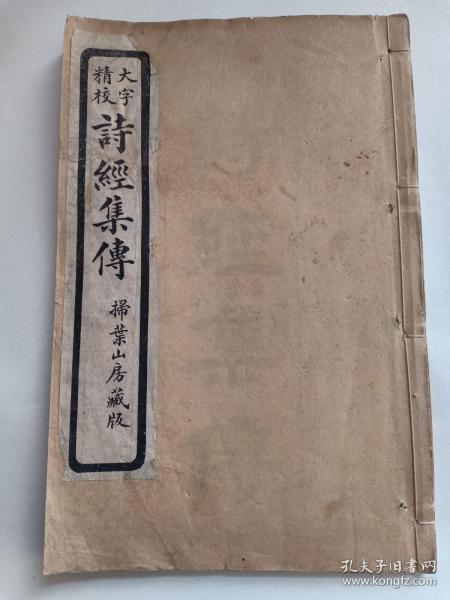 大字
精校
詩經集傳
掃葉山房藏版
孔夫子旧书网
www.kongfz.com